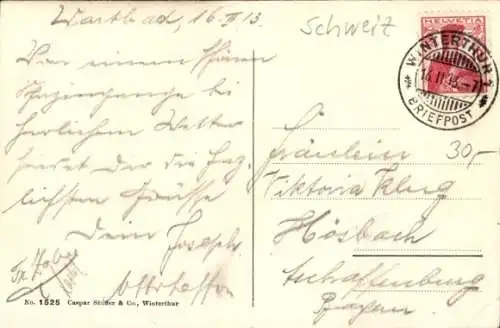 Wartbad, 16. II. 13.
Schweiz
HELVETIA
WINTERTHUR
16.II.13.-7
BRIEFPOST
Von einem schönen
Spaziergange bei
herrlichem Wetter
sendet Dir die herz-
lichsten Grüsse
Dein Joseph
30,-
Fräulein
Viktoria Klug
Hösbach
Aschaffenburg
Bayern
No. 1525 Caspar & Co., Winterthur